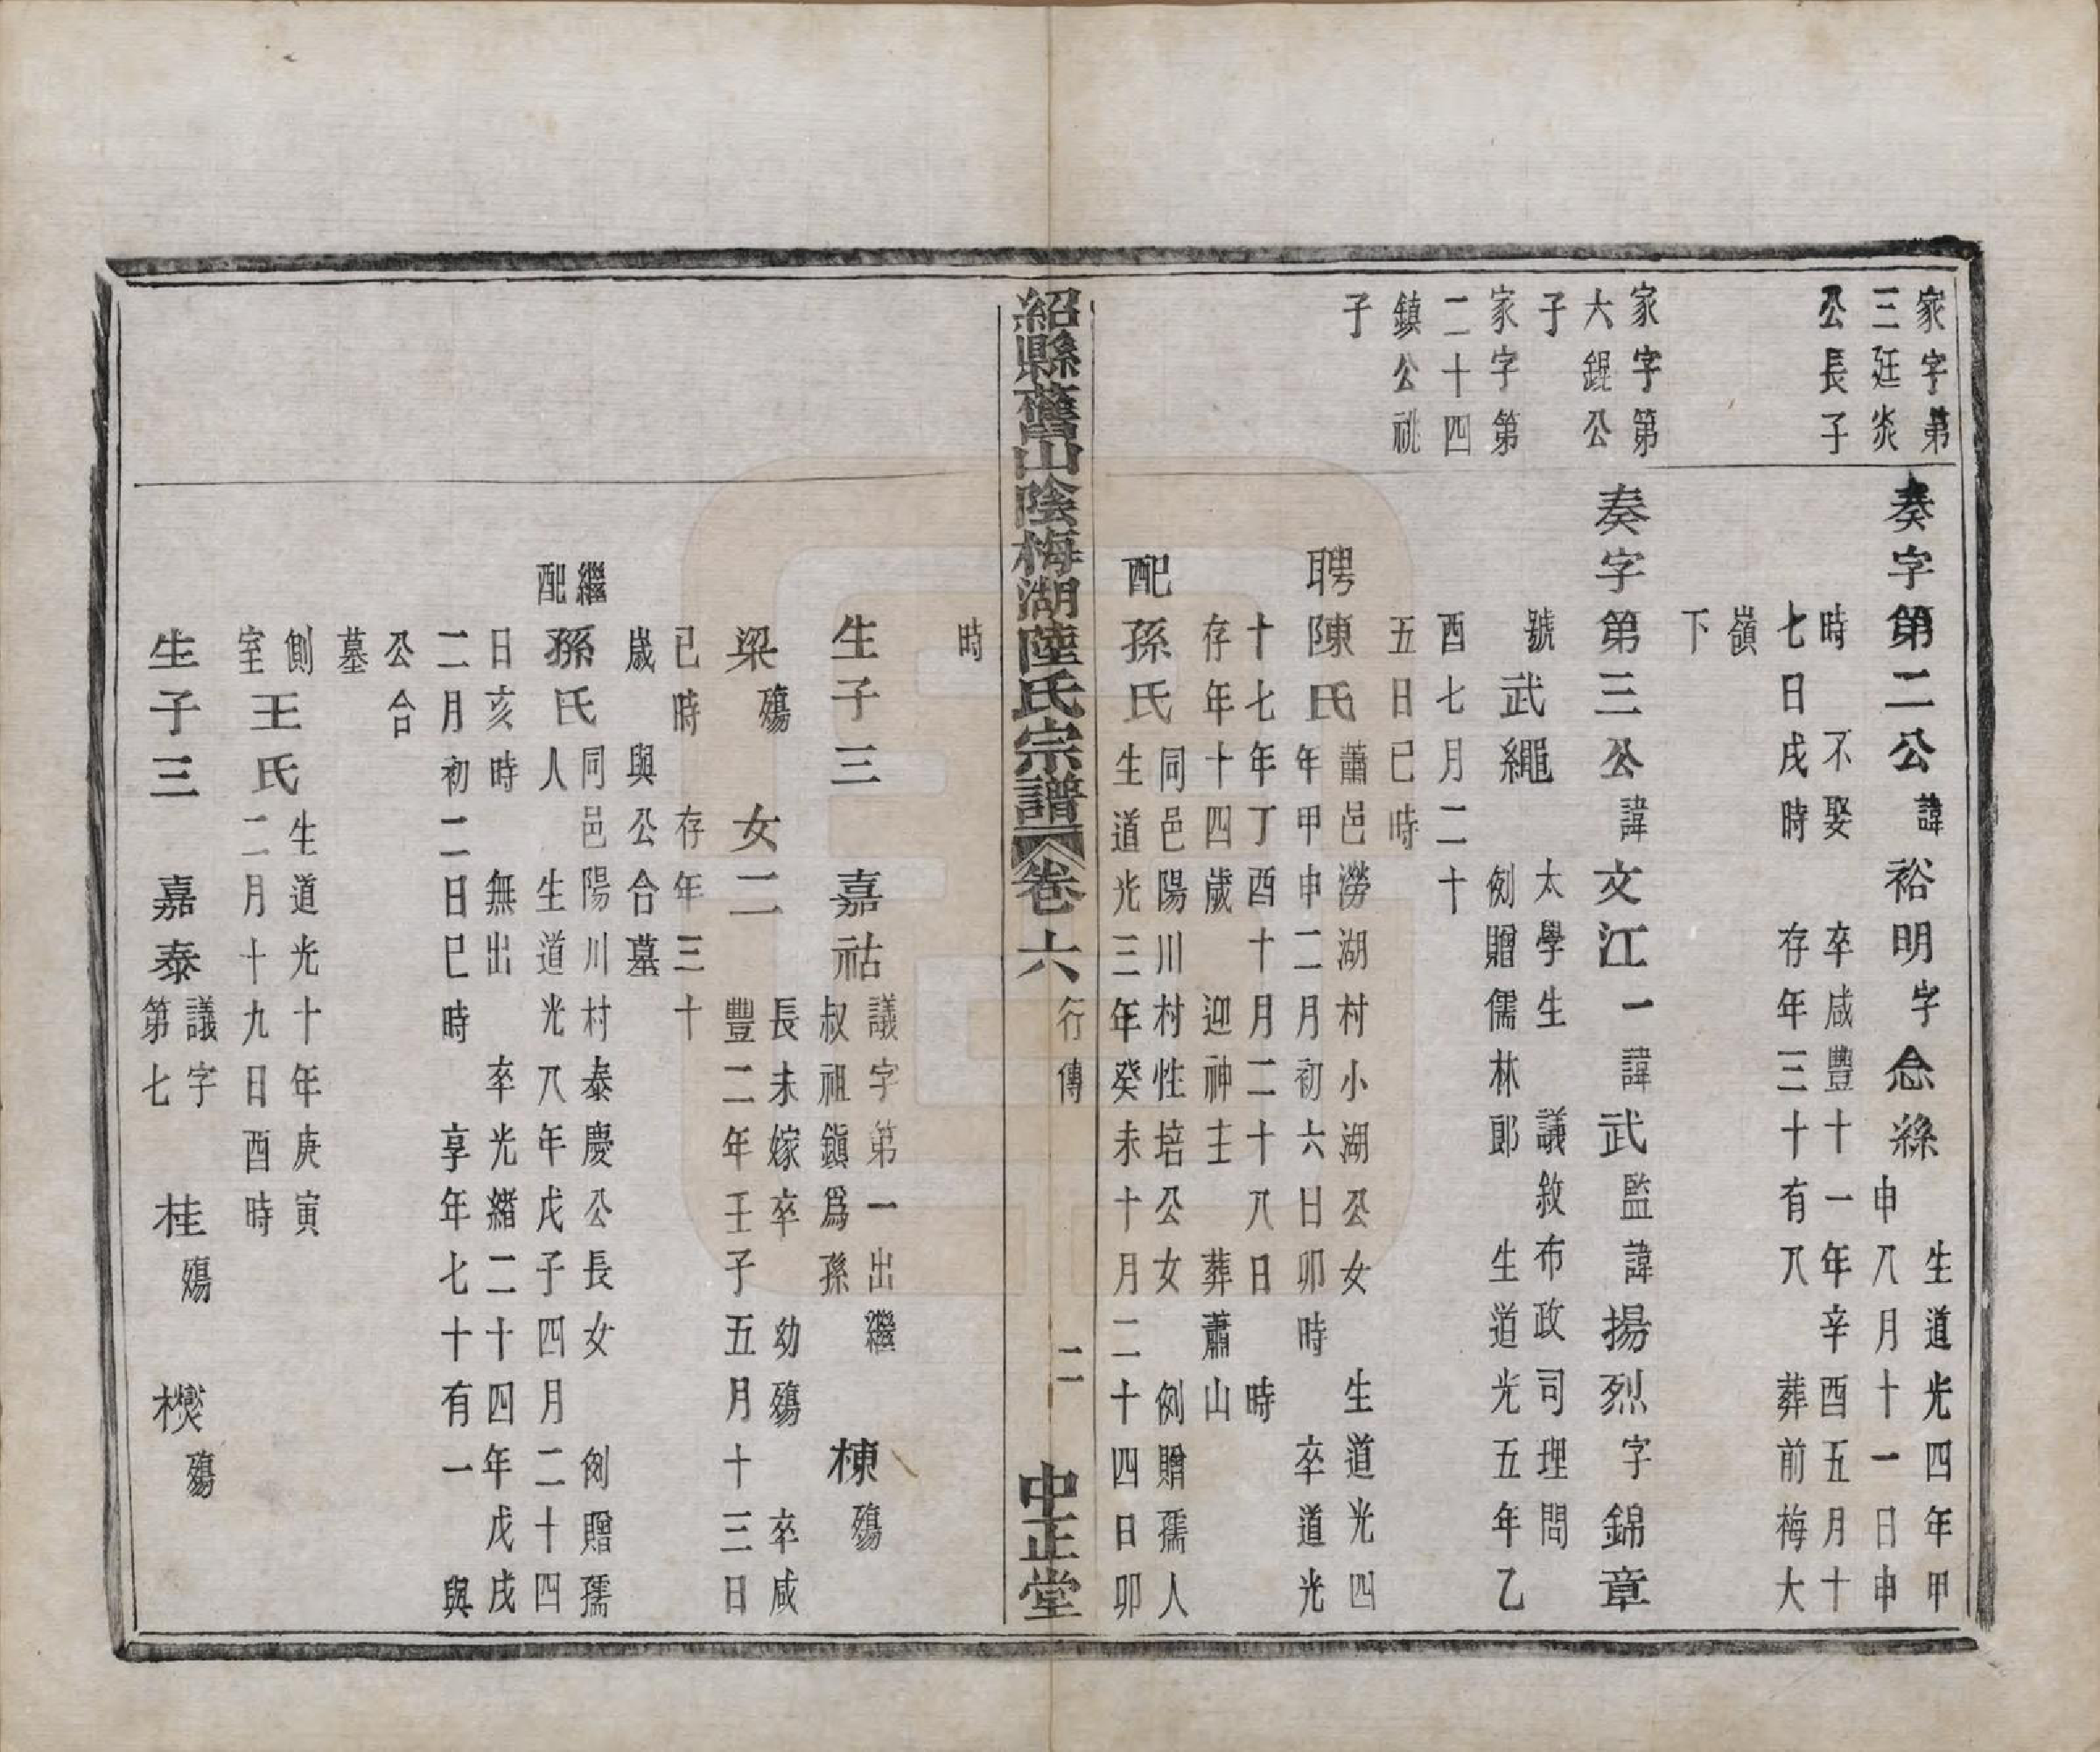 家字第
三廷炎
公長子
奏字第二公諱裕明字念絲
生道光四年甲
申八月十一日申
時　不娶　卒咸豐十一年辛酉五月十
七日戌時　存年三十有八　葬前梅大
嶺
下
家字第
大錕公
子
家字第
二十四
鎮公祧
子
奏字第三公諱文江一諱武監諱揚烈字錦章
號武繩
太學生　議敘布政司理問
例贈儒林郎　生道光五年乙
酉七月二十
五日巳時
聘陳氏
蕭邑澇湖村小湖公女　生道光四
年甲申二月初六日卯時　卒道光
十七年丁酉十月二十八日　時
存年十四歲　迎神主　葬蕭山
配孫氏
同邑陽川村性培公女　例贈孺人
生道光三年癸未十月二十四日卯
紹縣舊山陰梅湖陸氏宗譜　卷六　行傳　二　中正堂
時
生子三　嘉祜
議字第一出繼
叔祖鎮爲孫
棟殤
梁殤　女二
長未嫁卒　幼殤　卒咸
豐二年壬子五月十三日
巳時　存年三十
歲　與公合墓
繼
配
孫氏
同邑陽川村泰慶公長女　例贈孺
人　生道光八年戊子四月二十四
日亥時　無出　卒光緒二十四年戊戌
二月初二日巳時　享年七十有一　與
公合
墓
側
室
王氏
生道光十年庚寅
二月十九日酉時
生子三　嘉泰
議字
第七
桂殤　殤